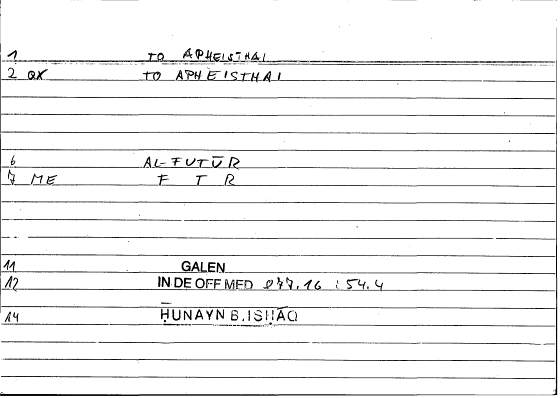 1 TO APHEISTHAI
2 QX TO APHEISTHAI
6 AL-FUTŪR
7 ME F T R
11 GALEN
12 IN DE OFF MED 977.16 : 54.4
14 ḤUNAYN B.ISḤĀQ